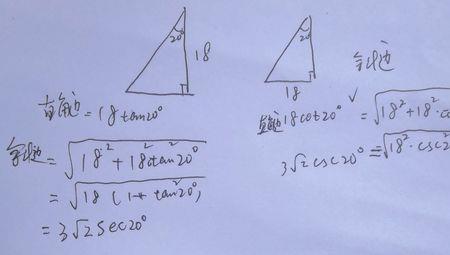 20°
18
直角边 = 18 tan20°
斜边 = √18² + 18² tan²20°
= √18 (1 + tan²20°)
= 3√2 sec20°
20°
18
斜边
直角边 18 cot20° ✓
= √18² + 18² · c
= √18² · csc²
3√2 csc 20°